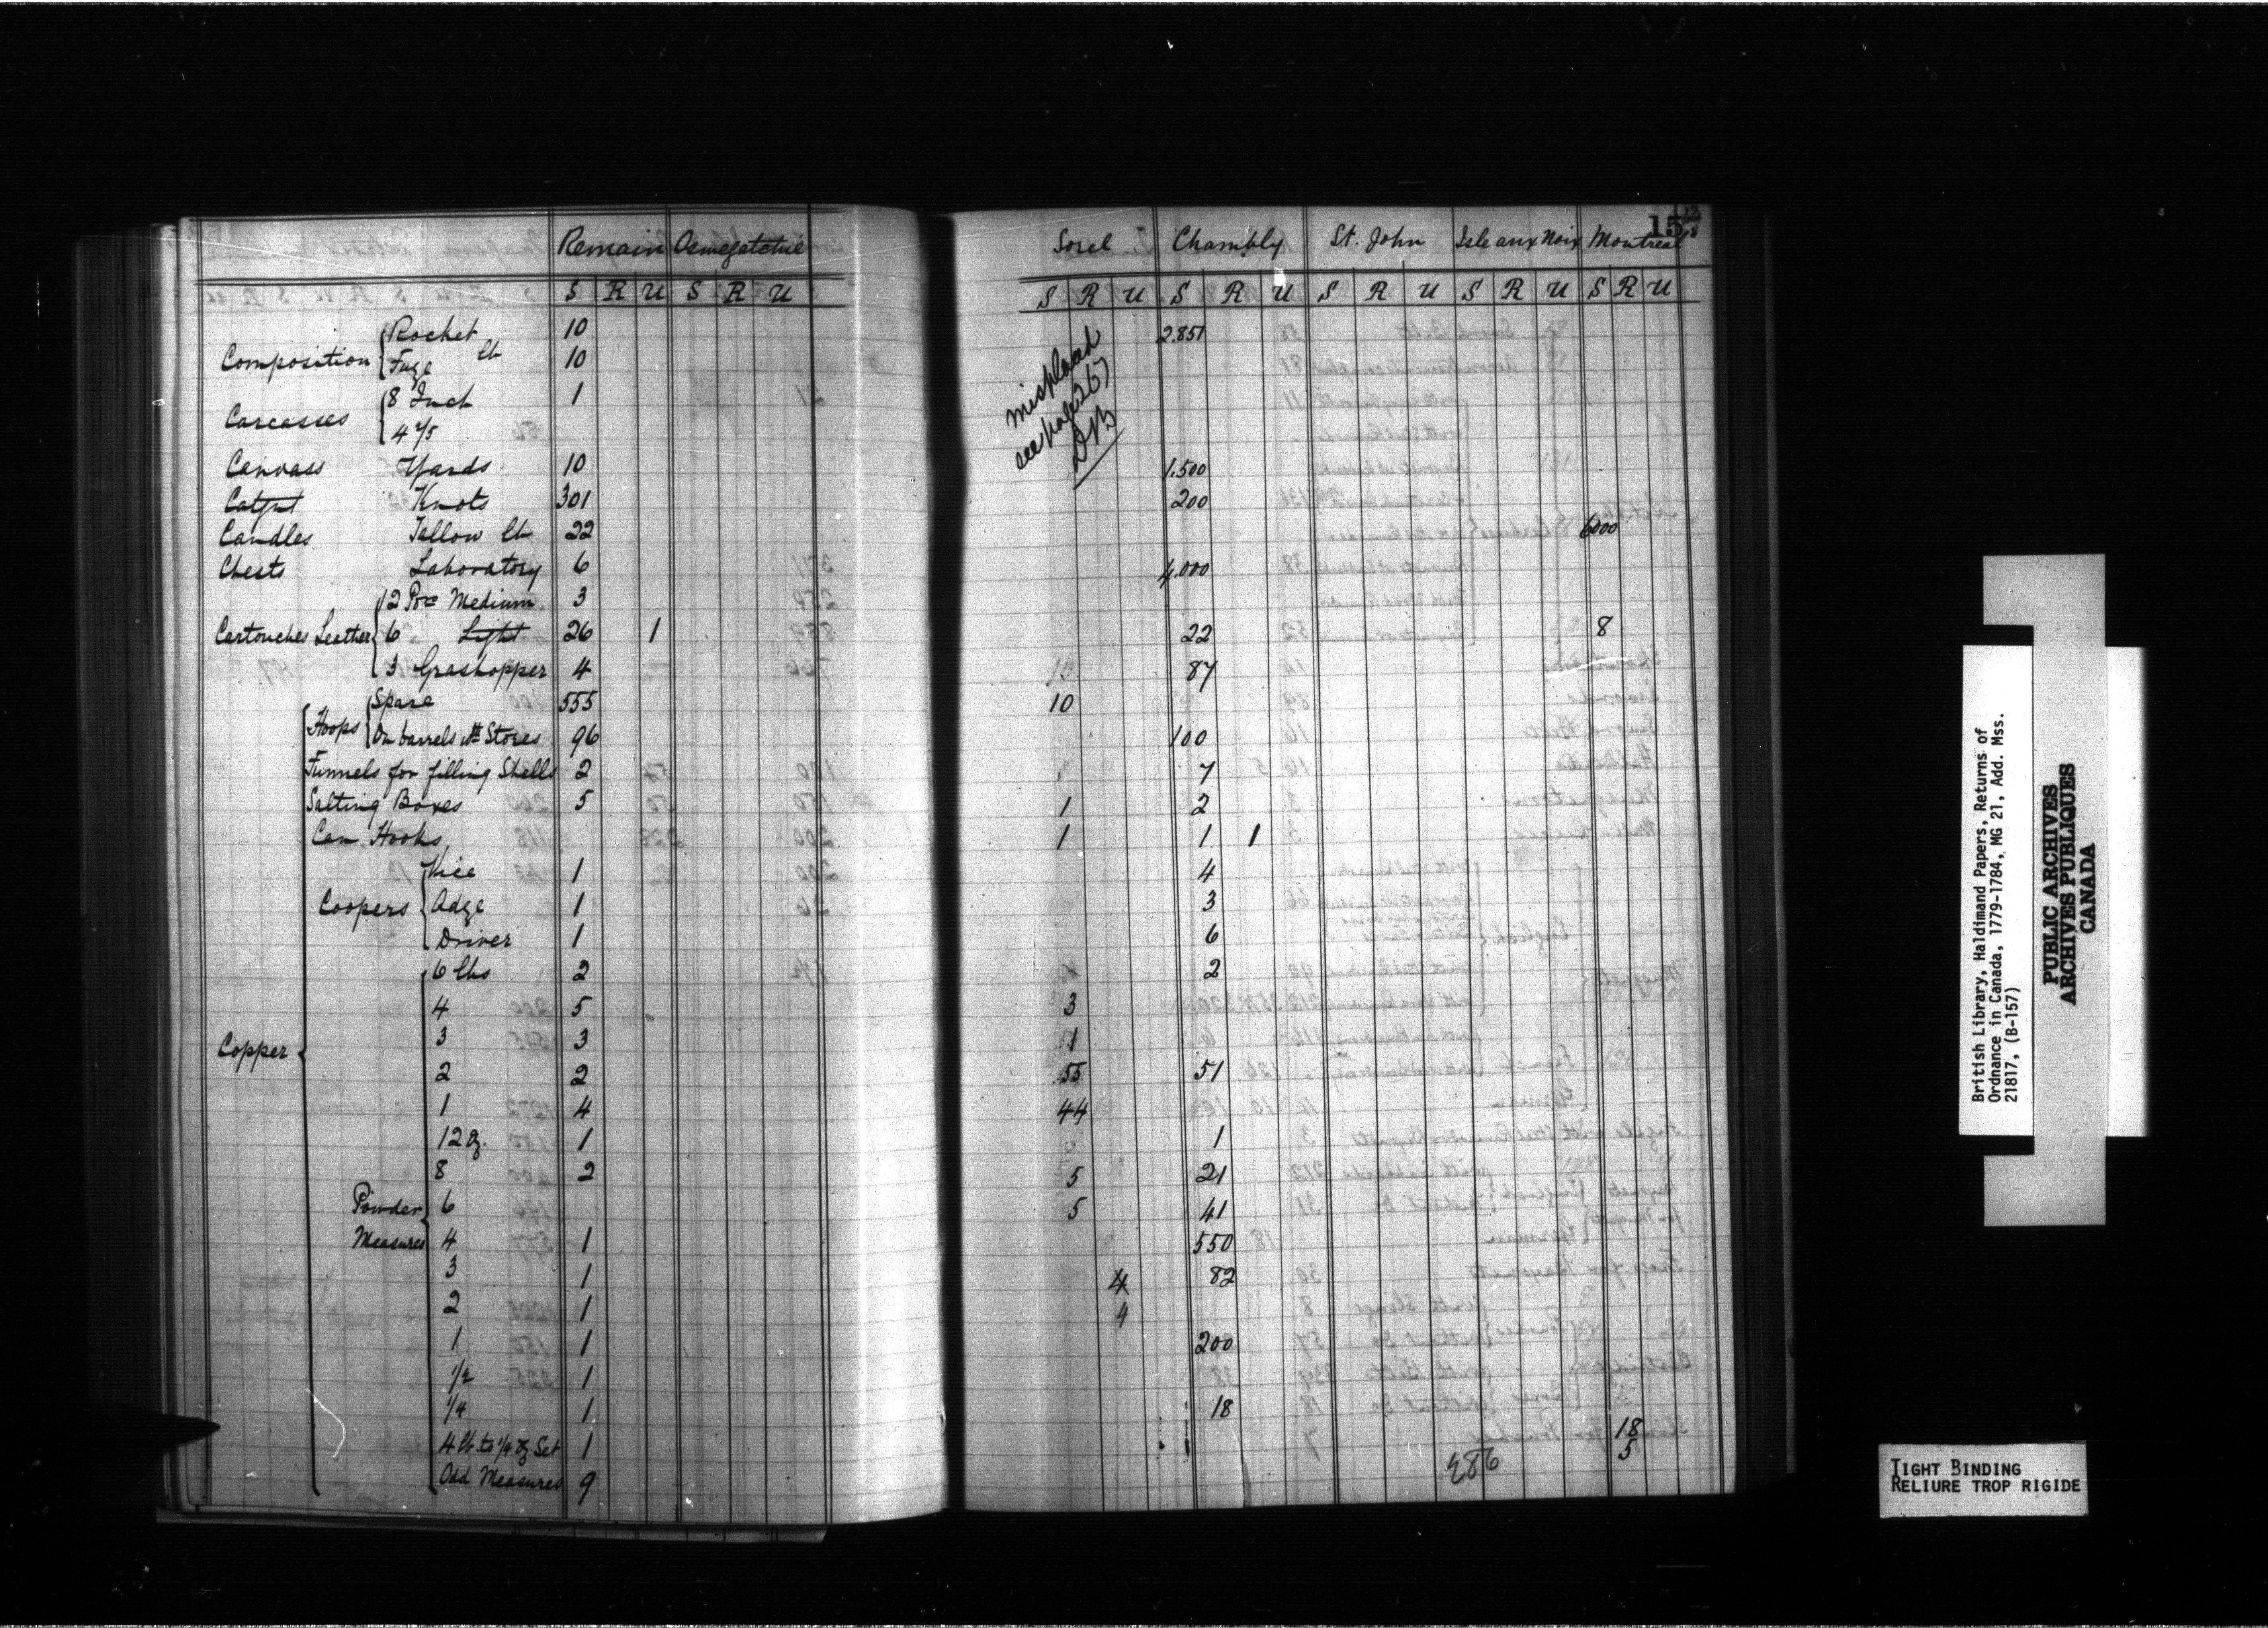 Remain Oswegatchie
S R U S R U
Composition { Rocket 10
Fuze lb 10
Carcasses { 8 Inch 1
4 2/5
Canvass Yards 10
Catgut Knots 301
Candles Tallow lb 22
Chests Laboratory 6
Cartouches Leather { 12 Por Medium 3
6 Light 26 1
3 Grashopper 4
Hoops { Spare 555
On barrels wth Stores 96
Funnels for filling Shells 2
Salting Boxes 5
Can Hooks
Coopers { Vice 1
Adze 1
Driver 1
6 lbs 2
4 5
Copper { 3 3
2 2
1 4
12 oz. 1
8 2
Powder { 6
Measures 4 1
3 1
2 1
1 1
1/2 1
1/4 1
4 lb. to 1/4 oz Set 1
Odd Measures 9
15
Sorel Chambly St. John Isle aux Noix Montreal
S R U S R U S R U S R U S R U
misplaced
see page 267
DB
2.851
1.500
200
6000
4.000
22 8
87
10
100
7
1 2
1 1 1
4
3
6
2
3
1
55 51
44
1
5 21
5 41
550
4 82
4
200
18
18
5
British Library, Haldimand Papers, Returns of
Ordnance in Canada, 1779-1784, MG 21, Add. Mss.
21817, (B-157)
PUBLIC ARCHIVES
ARCHIVES PUBLIQUES
CANADA
TIGHT BINDING
RELIURE TROP RIGIDE